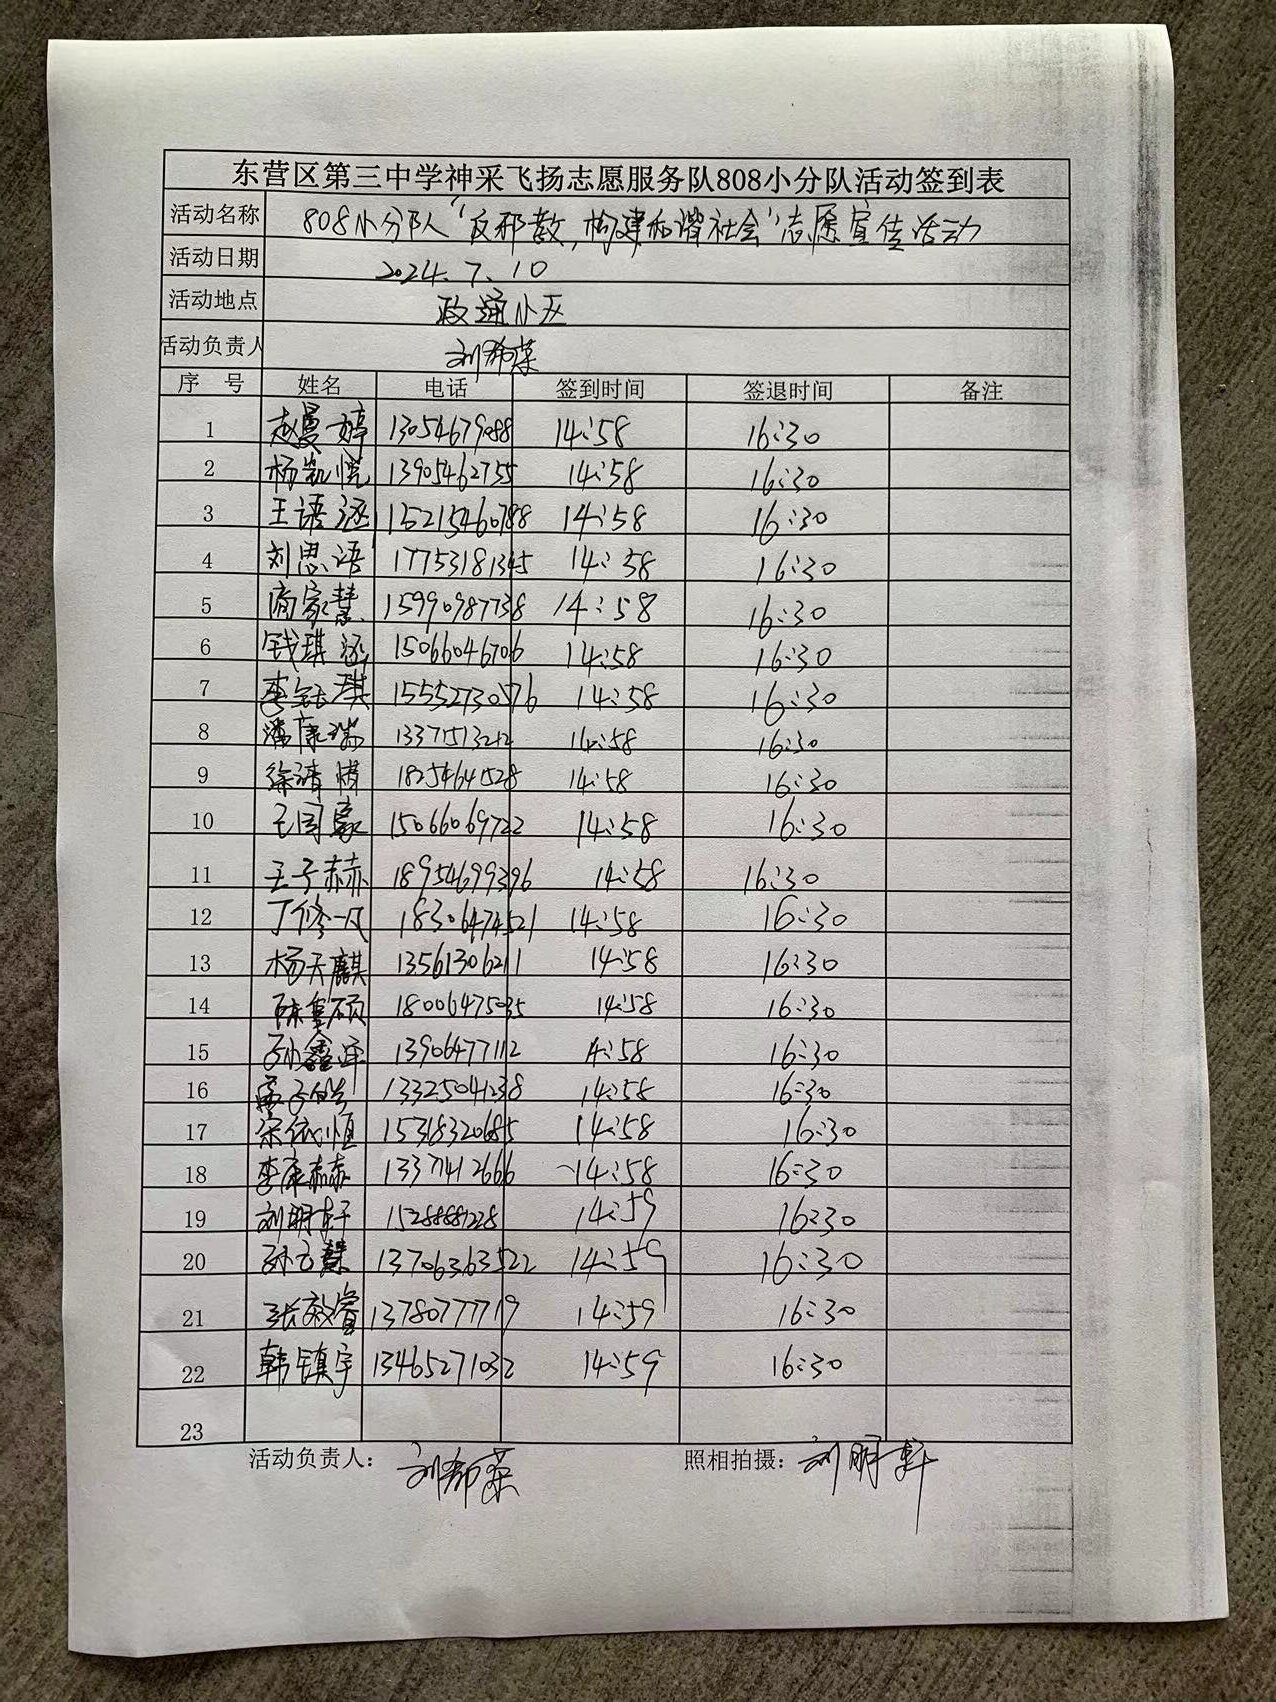 东营区第三中学神采飞扬志愿服务队808小分队活动签到表
活动名称 808小分队“反邪教,构建和谐社会”志愿宣传活动
活动日期 2024.7.10
活动地点 政通小区
活动负责人 刘希荣
序 号 姓名 电话 签到时间 签退时间 备注
1 赵曼婷 13054679088 14:58 16:30
2 杨凯悦 13905462755 14:58 16:30
3 王语涵 15215460788 14:58 16:30
4 刘思语 17753181345 14:58 16:30
5 商家慧 15990987738 14:58 16:30
6 钱琪涵 15066046706 14:58 16:30
7 李钰琪 15552730576 14:58 16:30
8 潘康瑞 13371513212 14:58 16:30
9 徐清惜 18254641528 14:58 16:30
10 王国豪 15066069722 14:58 16:30
11 王子赫 18954699396 14:58 16:30
12 丁修一凡 18306474521 14:58 16:30
13 杨天麒 13561306211 14:58 16:30
14 18006475035 14:58 16:30
15 孙鑫泽 13906477112 14:58 16:30
16 13325041238 14:58 16:30
17 宋依恒 15318320685 14:58 16:30
18 李康赫 13371412666 14:58 16:30
19 刘明轩 15288881228 14:59 16:30
20 13706363522 14:59 16:30
21 张效睿 13780777719 14:59 16:30
22 韩镇宇 13465271032 14:59 16:30
23
活动负责人: 刘希荣 照相拍摄: 刘明轩